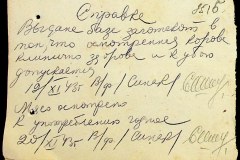 Справка
Выдана базе заготскот в
том, что осмотренная корова
клинически здорова и к убою
допускается
12/XI 43г. В/фр/ Синев/
Мясо осмотрено
к употреблению годное
20/XI 43г. В/фр/ Синев/